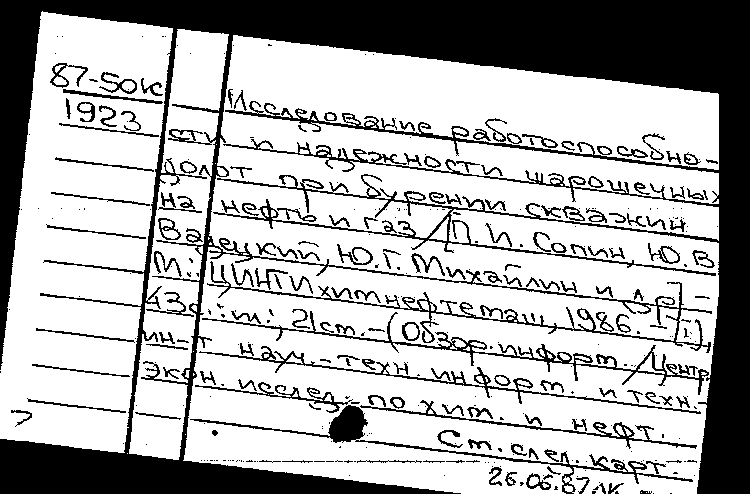 87-50к
1923
Исследование работоспособно-
сти и надежности шарошечных
долот при бурении скважин
на нефть и газ / [П. И. Сопин, Ю. В.
Вадецкий, Ю. Г. Михайлин и др.] -
М.: ЦИНТИхимнефтемаш, 1986. - [1],
43с.: ил.; 21см. - (Обзор. информ. / Центр.
ин-т науч.-техн. информ. и техн.
экон. исслед. по хим. и нефт.
См. след. карт.
26.06.87